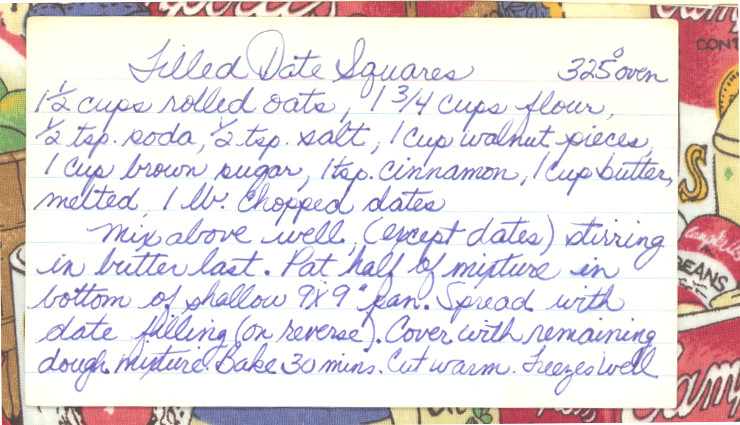 Filled Date Squares 325° oven
1 1/2 cups rolled oats, 1 3/4 cups flour,
1/2 tsp. soda, 1/2 tsp. salt, 1 cup walnut pieces,
1 cup brown sugar, 1 tsp. cinnamon, 1 cup butter,
melted, 1 lb. chopped dates
Mix above well, (except dates) stirring
in butter last. Pat half of mixture in
bottom of shallow 9x9" pan. Spread with
date filling (on reverse). Cover with remaining
dough mixture. Bake 30 mins. Cut warm. Freezes well
CONT
Campbell's
BEANS
Camp